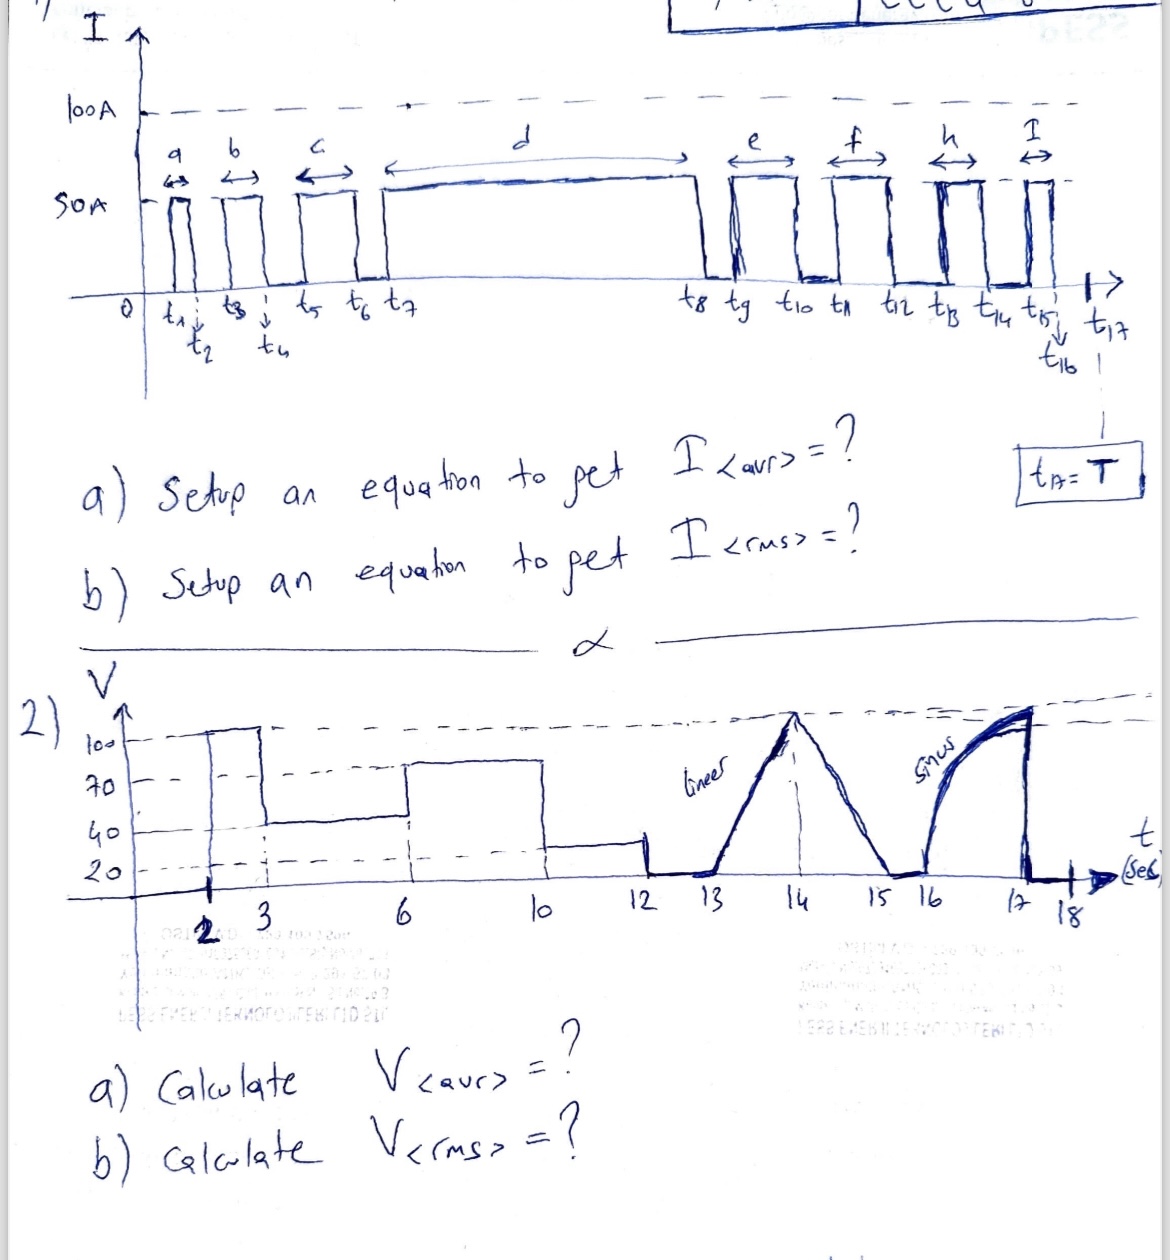 I
100A
a b c d e f h I
50A
0 t1 t3 t5 t6 t7 t8 t9 t10 t11 t12 t13 t14 t15 t17
t2 t4 t16
a) Setup an equation to get I<avr> = ?
t17 = T
b) Setup an equation to get I<rms> = ?
2)
V
100
70
40
20
lineer
sinus
t
(sec)
2 3 6 10 12 13 14 15 16 17 18
a) Calculate V<avr> = ?
b) Calculate V<rms> = ?